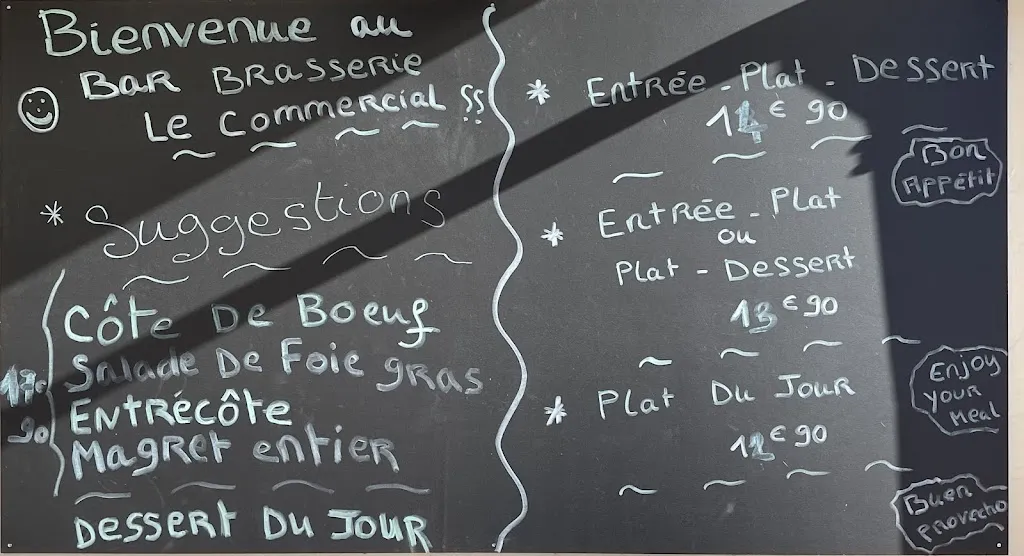 Bienvenue au
Bar Brasserie
Le Commercial
* Suggestions
Côte De Boeuf
Salade De Foie gras
Entrécôte
Magret entier
Dessert Du Jour
* Entrée - Plat - Dessert
€ 90
Bon
Appétit
* Entrée - Plat
ou
Plat - Dessert
13€ 90
Enjoy
your
Meal
* Plat Du Jour
12€ 90
Buen
Provecho